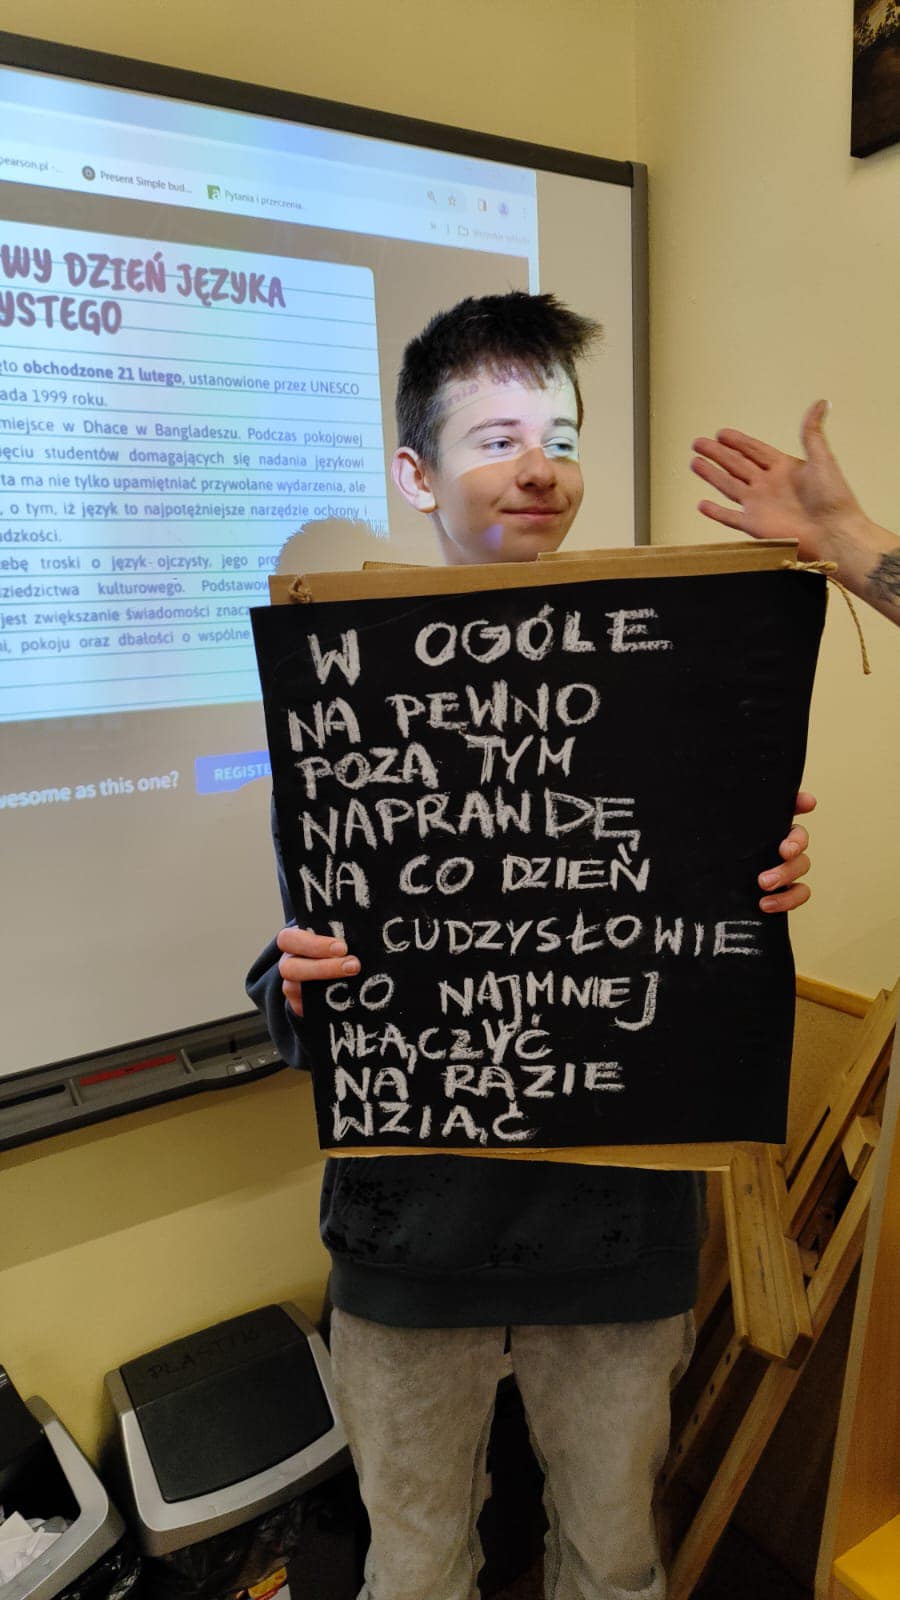 pearson.pl -...
Present Simple bud...
Pytania i przeczenia...
WY DZIEŃ JĘZYKA
YSTEGO
to obchodzone 21 lutego, ustanowione przez UNESCO
ada 1999 roku.
miejsce w Dhace w Bangladeszu. Podczas pokojowej
ęciu studentów domagających się nadania językowi
ta ma nie tylko upamiętniać przywołane wydarzenia, ale
, o tym, iż język to najpotężniejsze narzędzie ochrony i
udzkości.
ebę troski o język ojczysty, jego pro
ziedzictwa kulturowego. Podstawow
jest zwiększanie świadomości znacz
ni, pokoju oraz dbałości o wspólne
wesome as this one?
REGISTE
W OGÓLE
NA PEWNO
POZA TYM
NAPRAWDĘ
NA CO DZIEŃ
CUDZYSŁOWIE
CO NAJMNIEJ
WŁĄCZYĆ
NA RAZIE
WZIĄĆ
PLASTIK